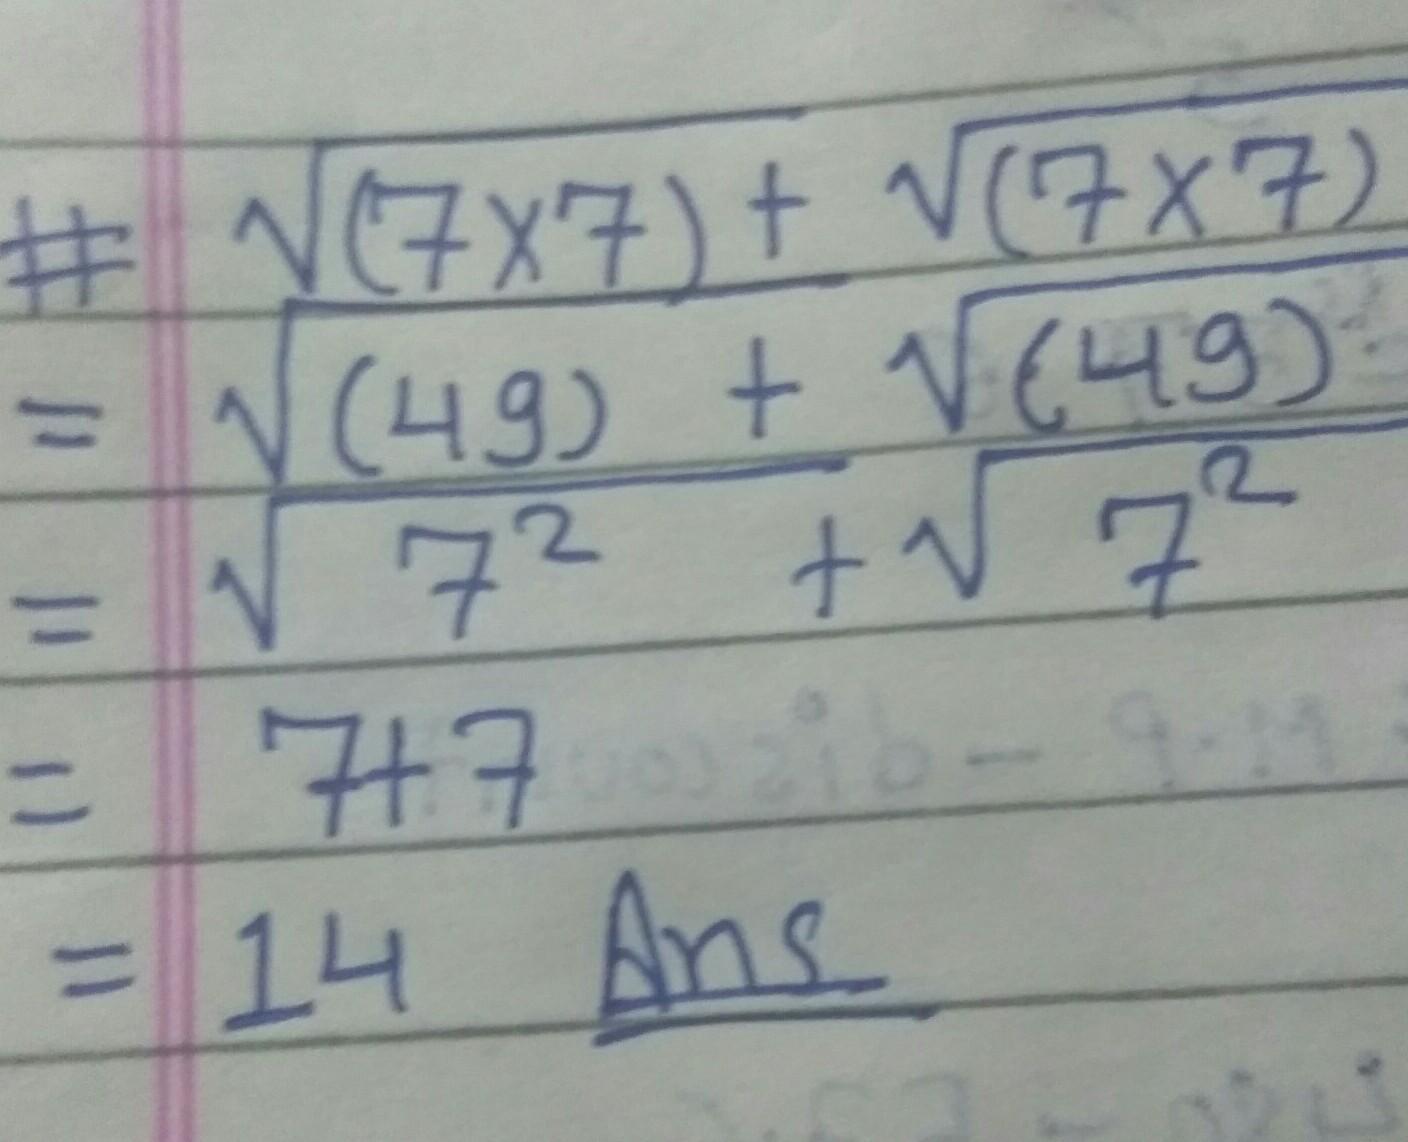 # √(7×7) + √(7×7)
= √(49) + √(49)
= √7² + √7²
= 7+7
= 14 Ans